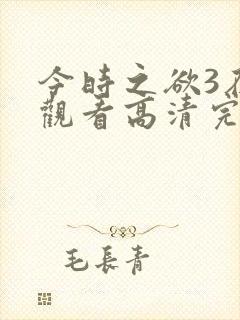 今時之欲3在
觀看高清完
毛長青